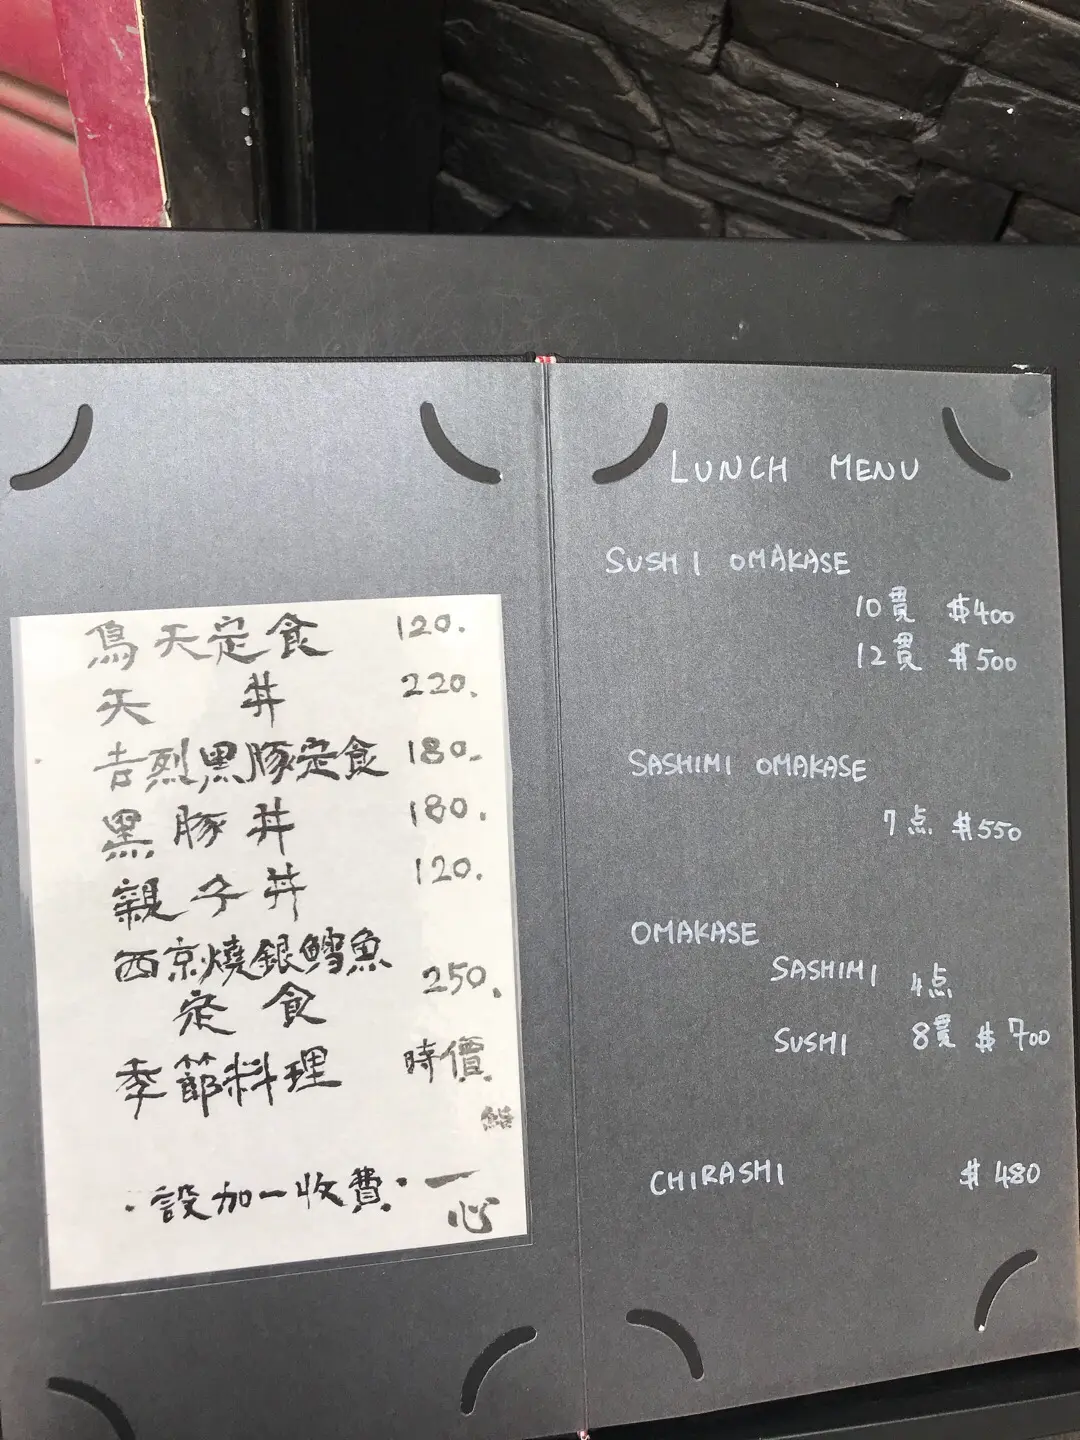 鳥天定食 120.
天丼 220.
吉烈黑豚定食 180.
黑豚丼 180.
親子丼 120.
西京燒銀鱈魚
定食 250.
季節料理 時價
鮨
·設加一收費· 一
心
LUNCH MENU
SUSHI OMAKASE
10貫 $400
12貫 $500
SASHIMI OMAKASE
7点 $550
OMAKASE
SASHIMI 4点
SUSHI 8貫 $700
CHIRASHI $480